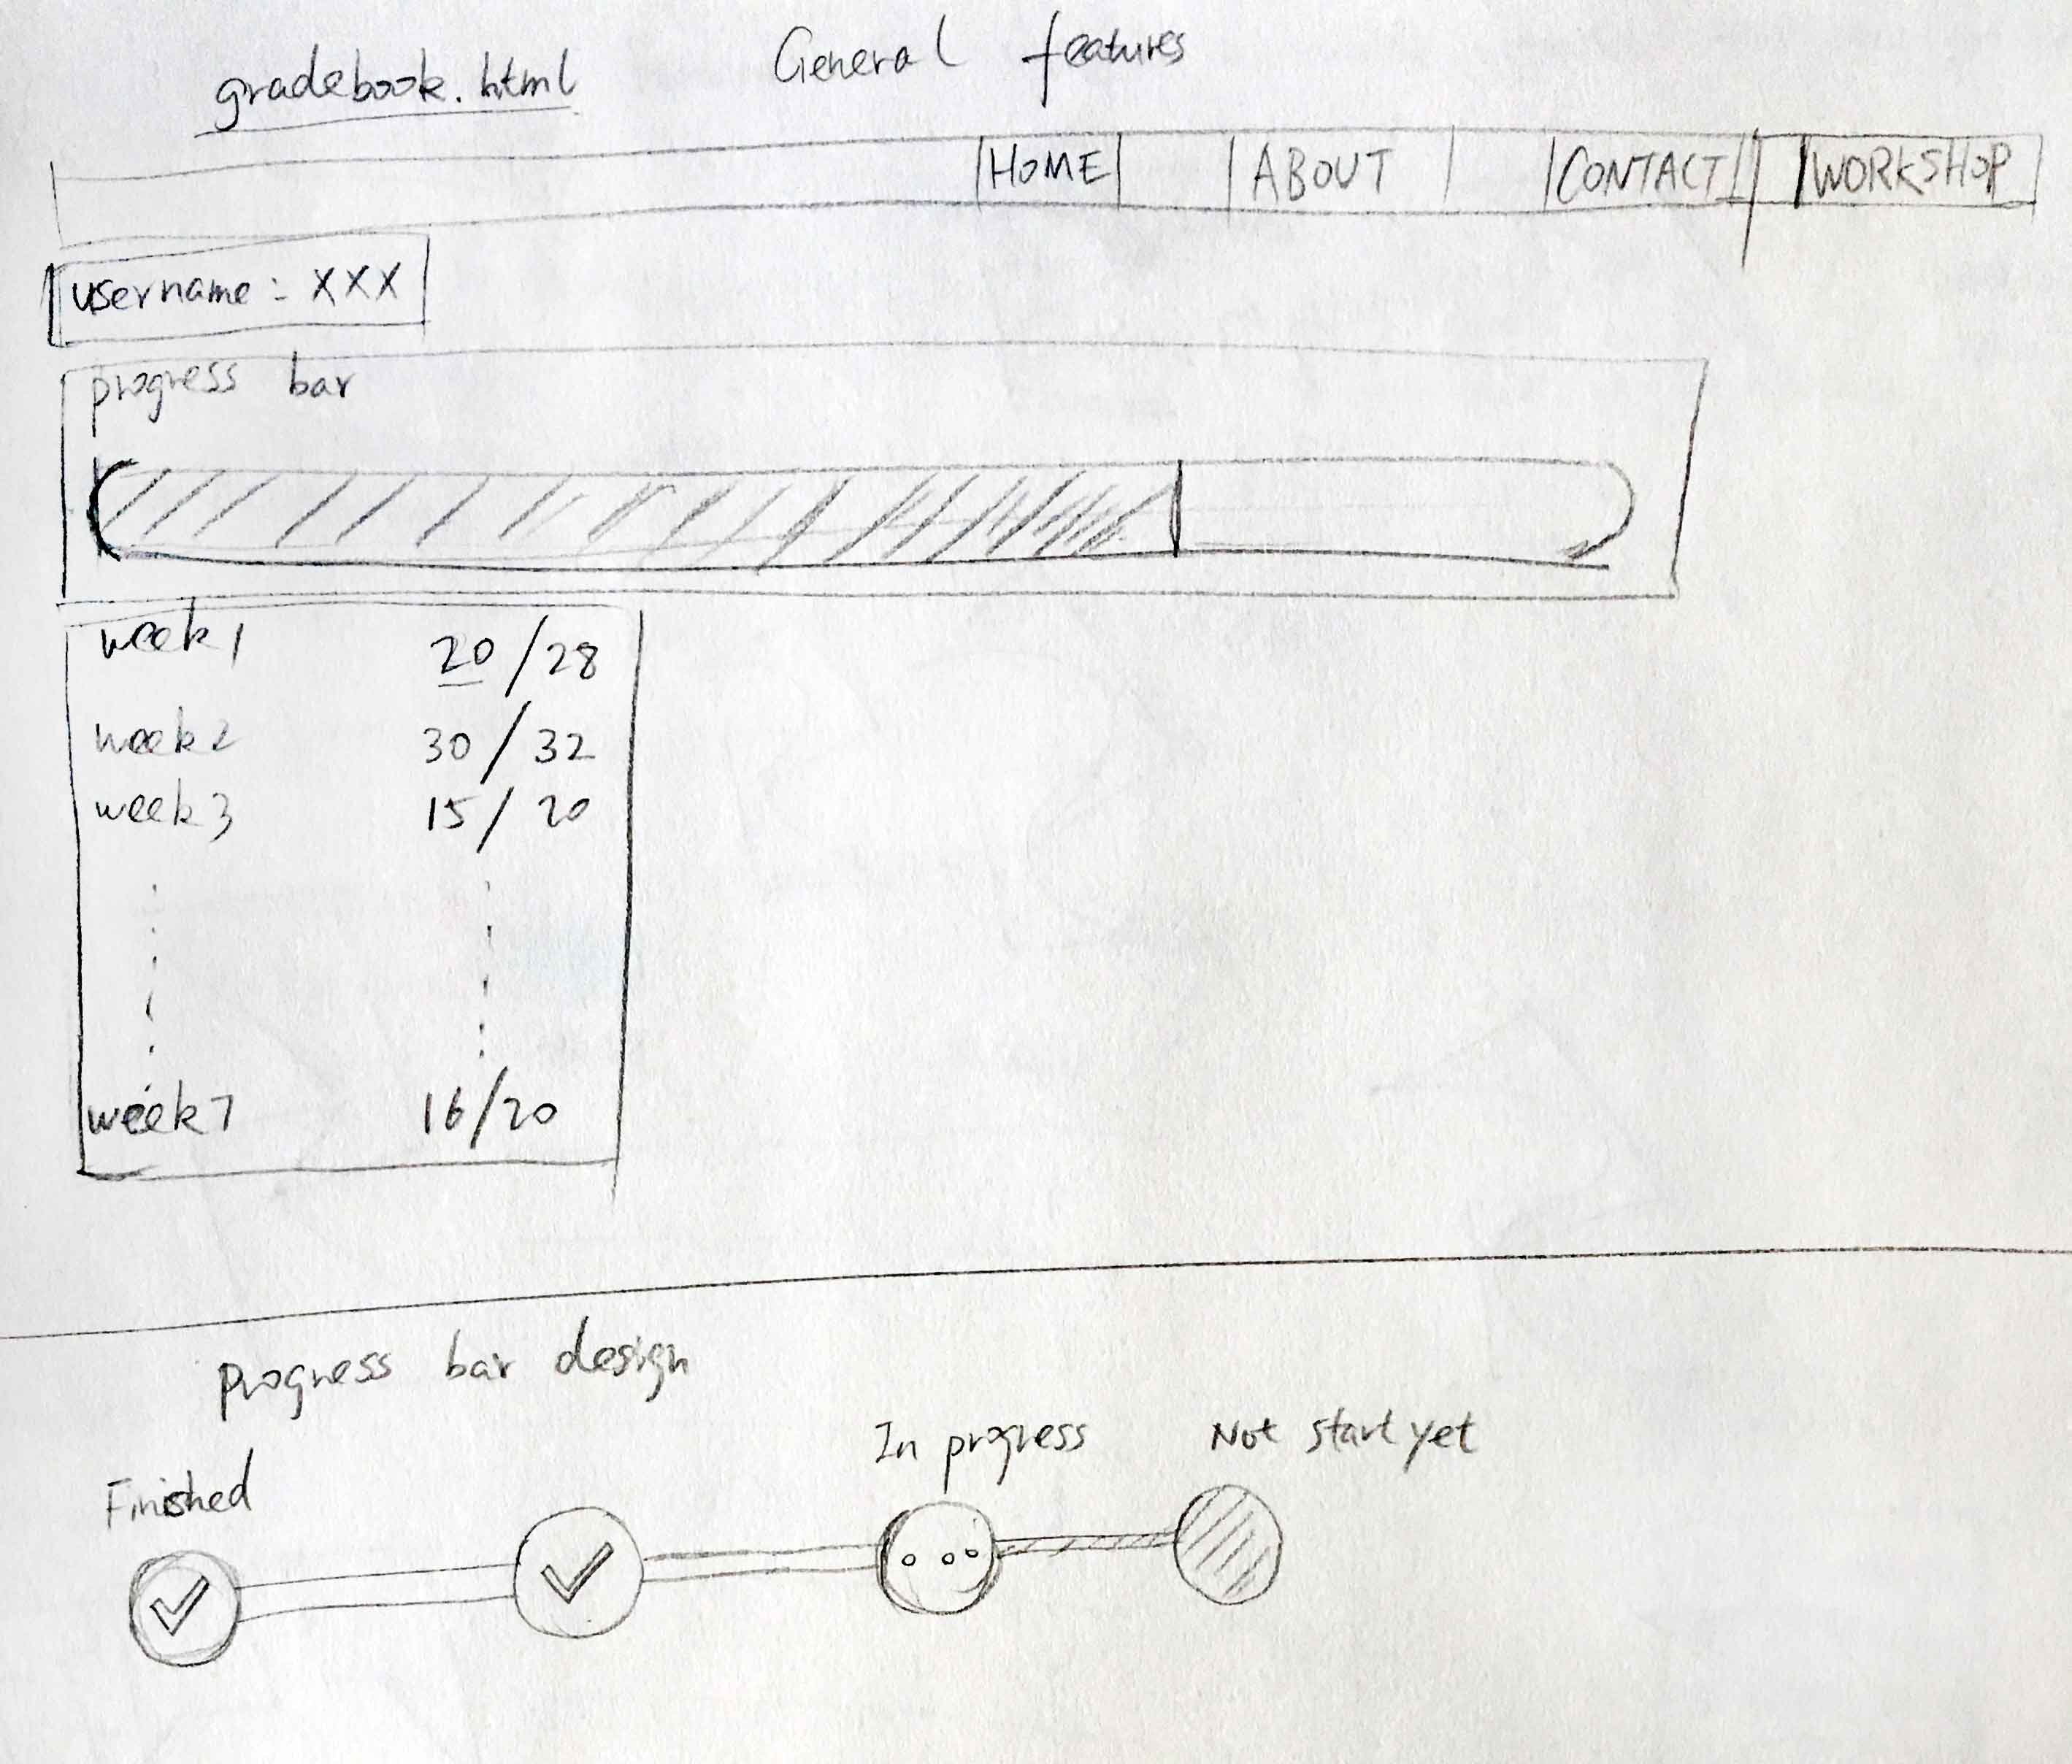 gradebook.html General features
HOME ABOUT CONTACT WORKSHOP
username: XXX
progress bar
week 1 20/28
week 2 30/32
week 3 15/20
week 7 16/20
Progress bar design
In progress Not start yet
Finished